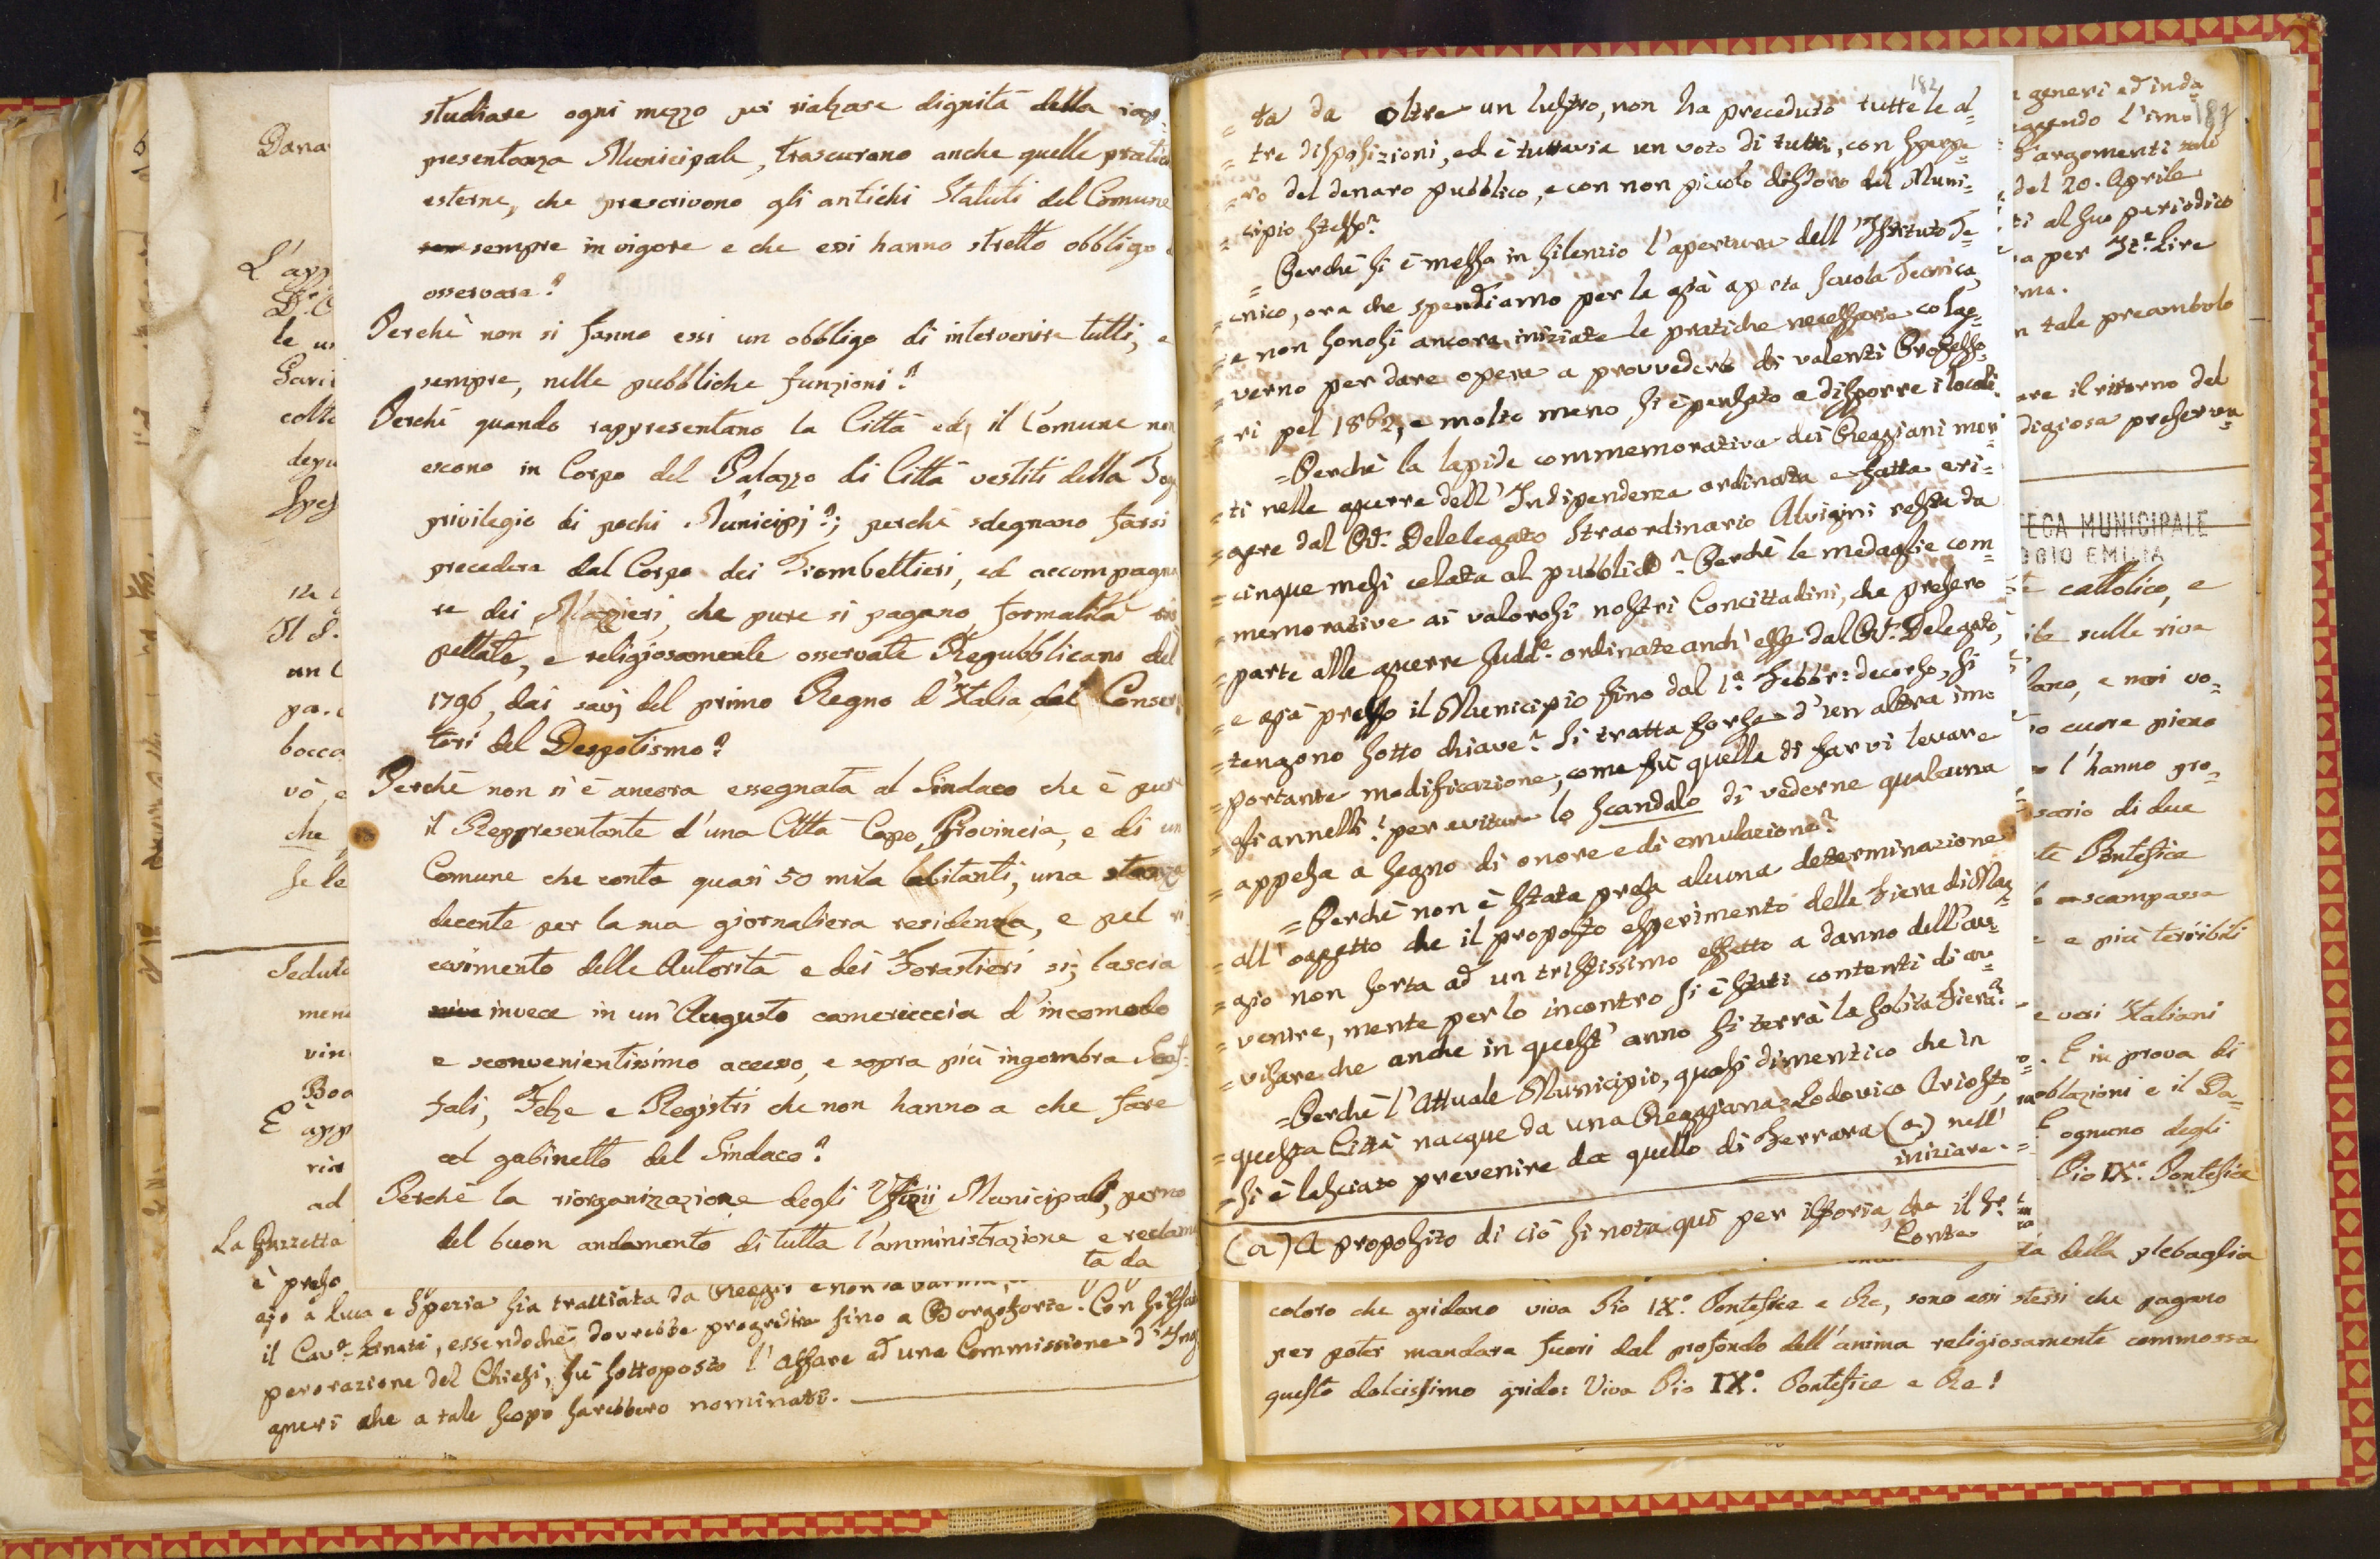 studiare ogni mezzo per rialzare dignità della rap-
presentanza Municipale, trascurano anche quelle pratich
esterne, che prescrivono gli antichi Statuti del Comune
sempre in vigore e che essi hanno stretto obbligo
osservare?
Perchè non si fanno essi un obbligo di intervenire tutti, e
sempre, nelle pubbliche funzioni?
Perchè quando rappresentano la Città ed il Comune non
escono in Corpo del Palazzo di Città vestiti della Tog
privilegio di pochi Municipj?; perchè sdegnano farsi
precedere dal Corpo dei Trombettieri, ed accompagna
re dei Mazzieri, che pure si pagano, formalità ris
pettate, e religiosamente osservate Repubblicano del
1796, dai savj del primo Regno d'Italia dai Conser
tori del Despotismo?
Perchè non si è ancora assegnata al Sindaco che è pure
il Reppresentante d'una Città Capo Provincia, e di un
Comune che conta quasi 50 mila abitanti, una stanza
decente per la sua giornaliera residenza, e pel ri
cevimento delle Autorità e dei Forastieri si, lascia
invece in un Augusto cameruccia d'incomodo
e sconvenientissimo accesso, e sopra più ingombra Scaf-
fali, Felze e Registri che non hanno a che fare
col gabinetto del Sindaco?
Perchè la riorganizzazione degli Ufizii Municipali, perno
del buon andamento di tutta l'amministrazione e reclama
ta da
182
= ta da oltre un lustro, non ha preceduto tutte le al=
= tre disposizioni, ed è tuttavia un voto di tutti, con sperpe=
= ro del denaro pubblico, e con non piccolo disdoro del Muni=
= cipio stesso?
= Perchè si è messa in silenzio l'apertura dell'Istituto Te=
= cnico, ora che spendiamo per la già aperta Scuola Tecnica,
= e non sonosi ancora iniziate le pratiche necessarie col go=
= verno per dare opera a provvederlo di valenti Professo=
= ri pel 1862, e molto meno si è pensato a disporre i locali.
= Perchè la lapide commemorativa dei Reggiani mor=
= ti nelle guerre dell'Indipendenza ordinata e fatta eri=
= gere dal Delelegato Straordinario Alvigini resta da
= cinque mesi celata al pubblico? Perchè le medaglie com=
= memorative ai valorosi nostri Concittadini, che presero
= parte alle guerre sudd.e ordinate anch'esse dal Delegato,
= e già presso il Municipio fino dal 1.o Febbr: decorso, si
= tengono sotto chiave? Si tratta forse d'un altra im=
= portante modificazione, come fù quella di farvi levare
= gli annelli? per evitare lo scandalo di vederne qualcuna
= appesa a segno di onore e di emulazione?
= Perchè non è stata presa alcuna determinazione
= all'oggetto che il proposto esperimento delle Fiera di Mag=
= gio non sorta ad un tristissimo effetto a danno dell'av=
= venire, mente per lo incontro si è stati contenti di av=
= visare che anche in quest'anno si terrà la solita Fiera?
= Perchè l'Attuale Municipio, quasi dimentico che in
= questa Città nacque da una Reggiana Lodovico Ariosto,
= si è lasciato prevenire da quello di Ferrara (a) nell'
iniziare
(a) A proposito di ciò si nota quì per istoria, che il S.r
Conte
Dana
L'app
D.r C
le un
Gari
colte
depu
Spes
Il S.
un C
pa.
bocca
vò, e
che
se le
Seduta
men
vin
Boa
È app
ria
ad
La Gazzetta
è preso
gio a Luca e Spezia sia tracciata da Reggio e non da Parma,
il Cav.e essendochè dovrebbe progredire fino a Borgoforte. Con
perorazione del Chiesi, fù sottoposto l'affare ad una Commissione d'Ing
gneri che a tale scopo sarebbero nominati.
generi ed inda=
l'imo 181
d'argomenti
del 20. Aprile
ti al suo periodico
a per It.e Lire
n tale preambolo
are il ritorno del
digiosa preserva=
TECA MUNICIPALE
GGIO EMILIA
cattolico, e
sulle rive
e noi vo=
cuore pieno
l'hanno pro=
sario di due
Pontefice
scampasse
e più terribili
e veri Italiani
. E in prova di
oblazioni e il Da=
ognuno degli
Pio IX.o Pontefice
della plebaglia
coloro che gridano viva Pio IX.o Pontefice e Re, sono essi stessi che pagano
per poter mandare fuori dal profondo dell'anima religiosamente commossa
questo dolcissimo grido: Viva Pio IX.o Pontefice e Re!